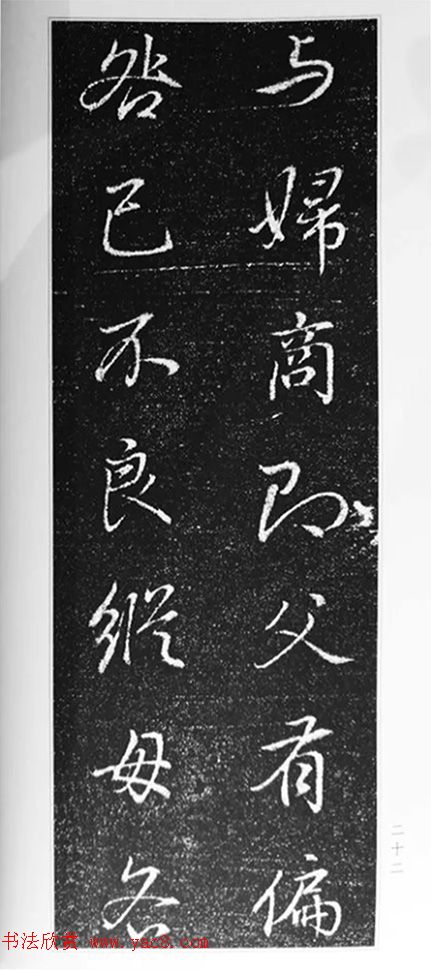 与婦商即父有偏
咎已不良縱母各
二十二
书法欣赏 www.yac8.com